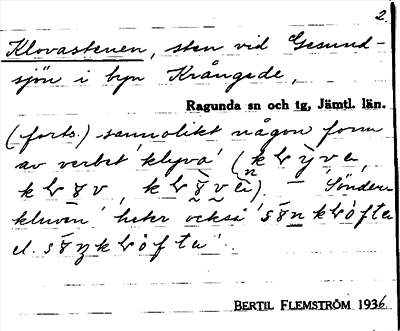 2.
Klovastenen, sten vid Gesund-
sjön i byn Krångede,
Ragunda sn och tg, Jämtl. län.
(forts.) sannolikt någon form
av verbet 'klyva' (
). – 'Sönder-
kluven' heter också
el.
BERTIL FLEMSTRÖM 1936